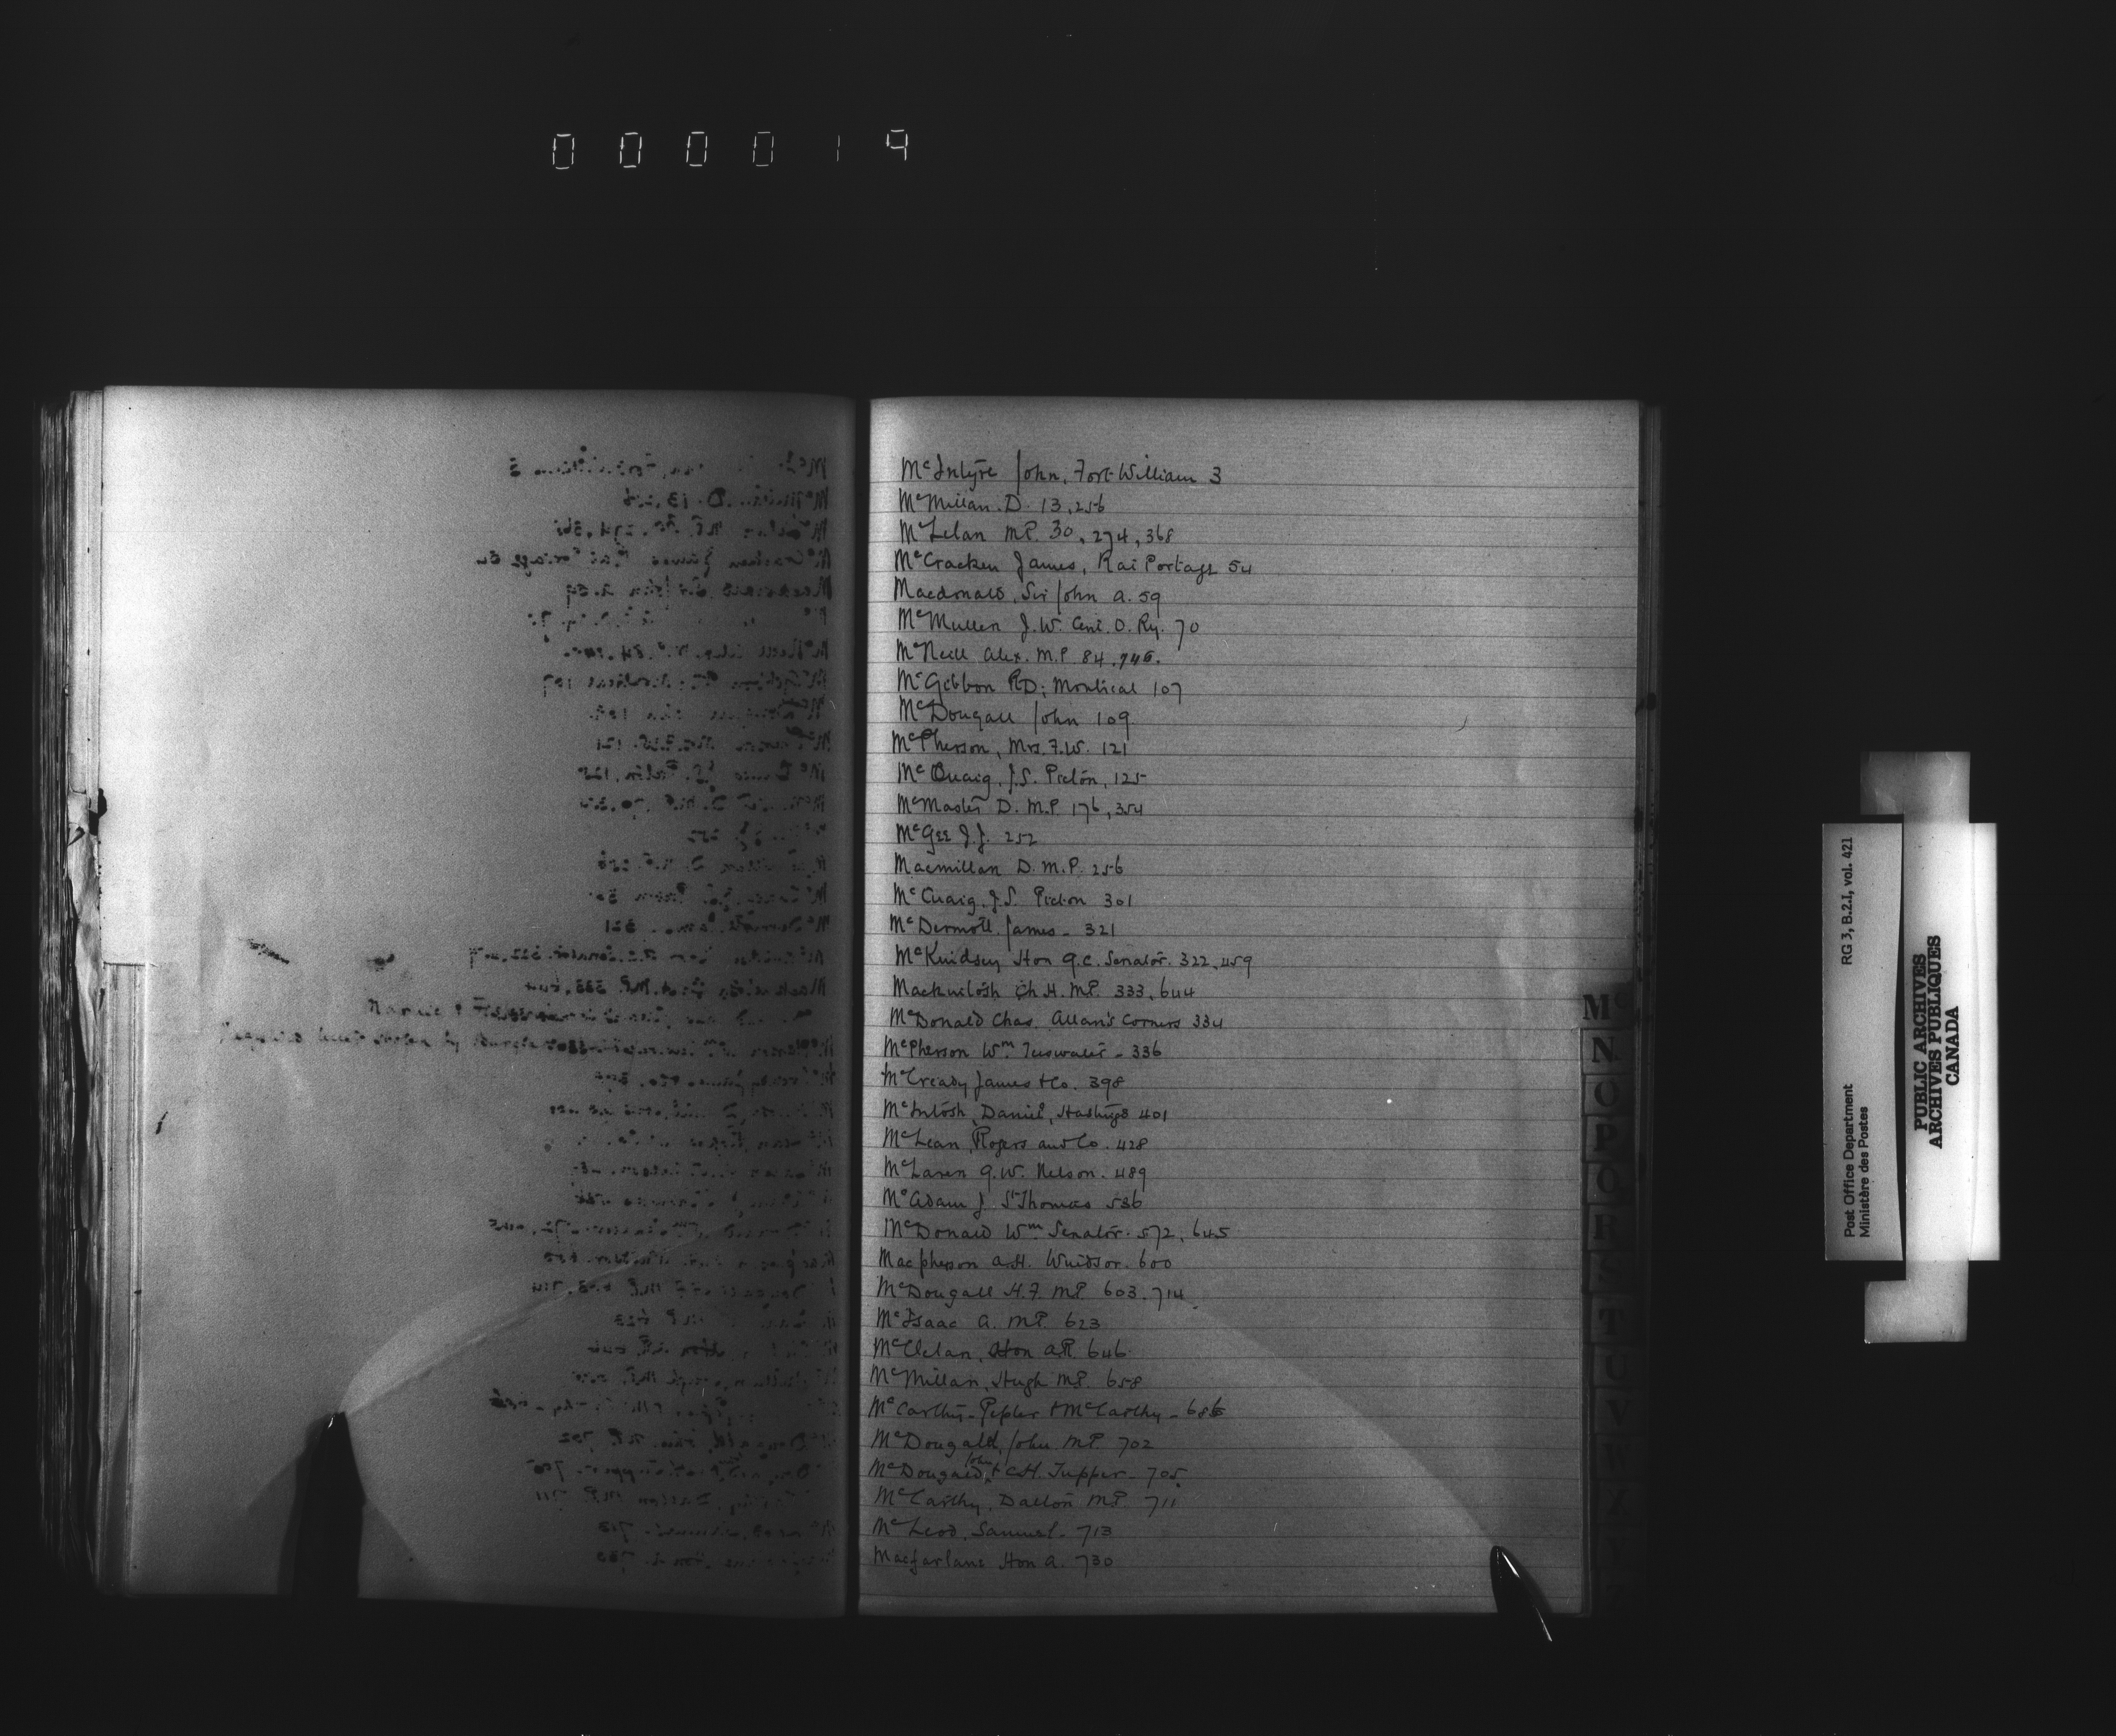 000019
McIntyre John, Fort William 3
McMillan. D. 13, 256
McLelan M.P. 30, 274, 368
McCracken James, Rai Portage 54
Macdonald, Sir John A. 59
McMullen J.W. Cent. O. Ry. 70
McNeill Alex. M.P 84, 746.
McGibbon RD; Montreal 107
McDougall John 109
McPherson, Mrs. F.W. 121
McCuaig, J.S. Picton, 125
McMaster D. M.P. 176, 354
McGee J.J. 252
Macmillan D. M.P. 256
McCuaig, J.S. Picton 301
McDermott James - 321
McKindsey Hon G.C. Senator. 322, 459
Mackintosh Ch H. M.P. 333, 644
McDonald Chas. Allan's Corners 334
McPherson Wm Teeswater - 336
McCready James & Co. 398
McIntosh, Daniel, Hastings 401
McLean, Rogers and Co. 428
McLaren G.W. Nelson. 489
McAdam J. St Thomas 536
McDonald Wm Senator. 572, 645
Macpherson A.H. Windsor. 600
McDougall H.F. M.P. 603, 714
McIsaac A. M.P. 623
McClelan, Hon A.R. 646
McMillan, Hugh M.P. 658
McCarthy - Pepler & McCarthy - 686
McDougald, John M.P. 702
McDougald, John & C.H. Tupper - 705
McCarthy, Dalton M.P. 711
McLeod, Samuel - 713
Macfarlane Hon A. 730
Mc
N
O
P
Q
R
S
T
U
V
W
RG 3, B.2.I, vol. 421
Post Office Department
Ministère des Postes
PUBLIC ARCHIVES
ARCHIVES PUBLIQUES
CANADA